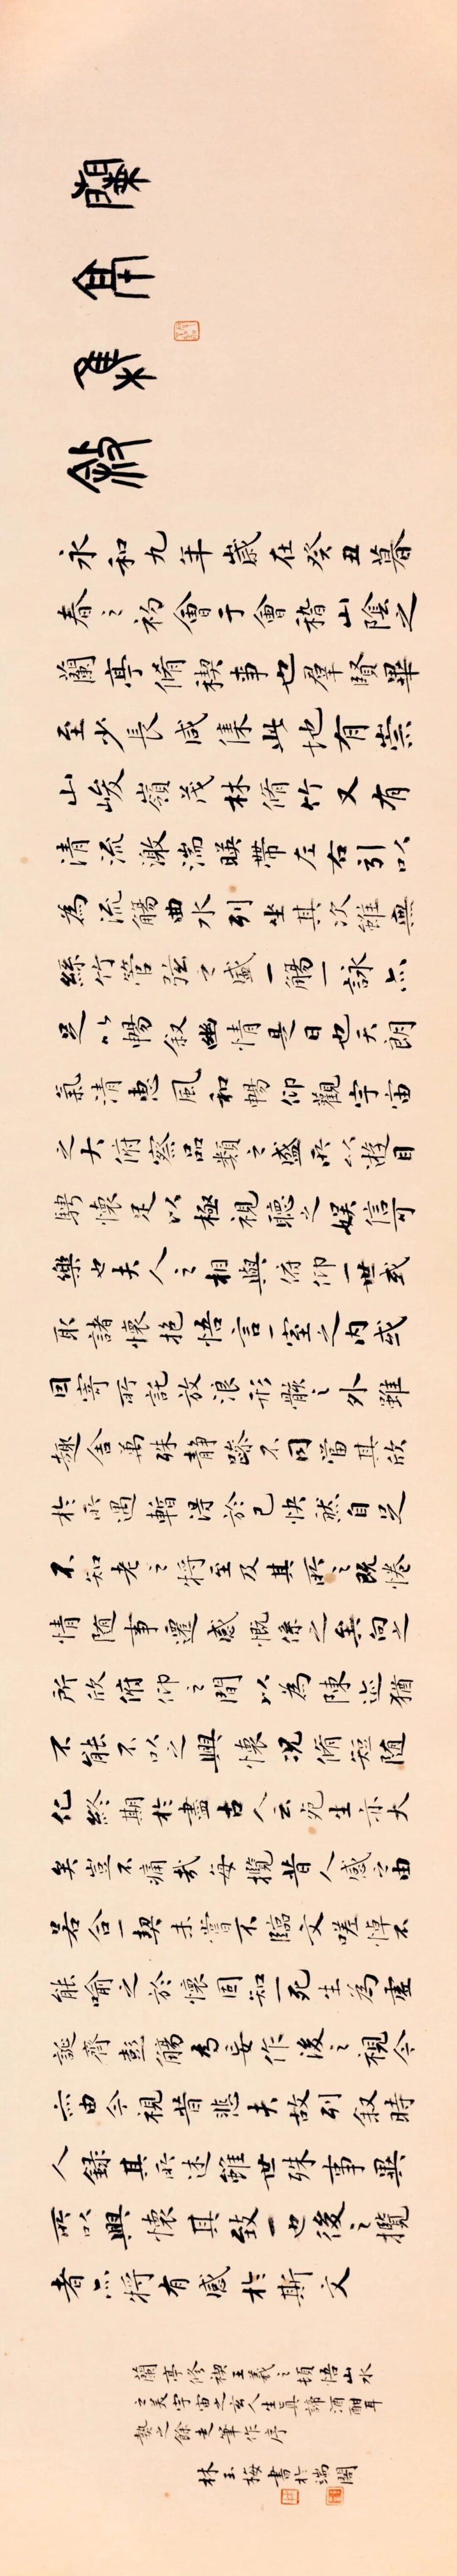 蘭亭集敘
永和九年歲在癸丑暮
春之初會于會稽山陰之
蘭亭脩禊事也羣賢畢
至少長咸集此地有崇
山峻嶺茂林脩竹又有
清流激湍暎帶左右引以
為流觴曲水列坐其次雖無
絲竹管弦之盛一觴一詠亦
足以暢叙幽情是日也天朗
氣清惠風和暢仰觀宇宙
之大俯察品類之盛所以遊目
騁懷足以極視聽之娛信可
樂也夫人之相與俯仰一世或
取諸懷抱悟言一室之内或
因寄所託放浪形骸之外雖
趣舍萬殊静躁不同當其欣
於所遇暫得於己快然自足
不知老之將至及其所之既惓
情随事遷感慨係之矣向之
所欣俯仰之間以為陳迹猶
不能不以之興懷况脩短随
化終期於盡古人云死生亦大
矣豈不痛哉每攬昔人感之由
若合一契未嘗不臨文嗟悼不
能喻之於懷固知一死生為虛
誕齊彭觴為妄作後之視今
亦由今視昔悲夫故列叙時
人録其所述雖世殊事異
所以興懷其致一也後之攬
者亦將有感於斯文
蘭亭修禊王羲之頓悟山水
之美宇宙之玄人生真諦酒酣耳
熱之餘走筆作序
林玉梅書於端閣